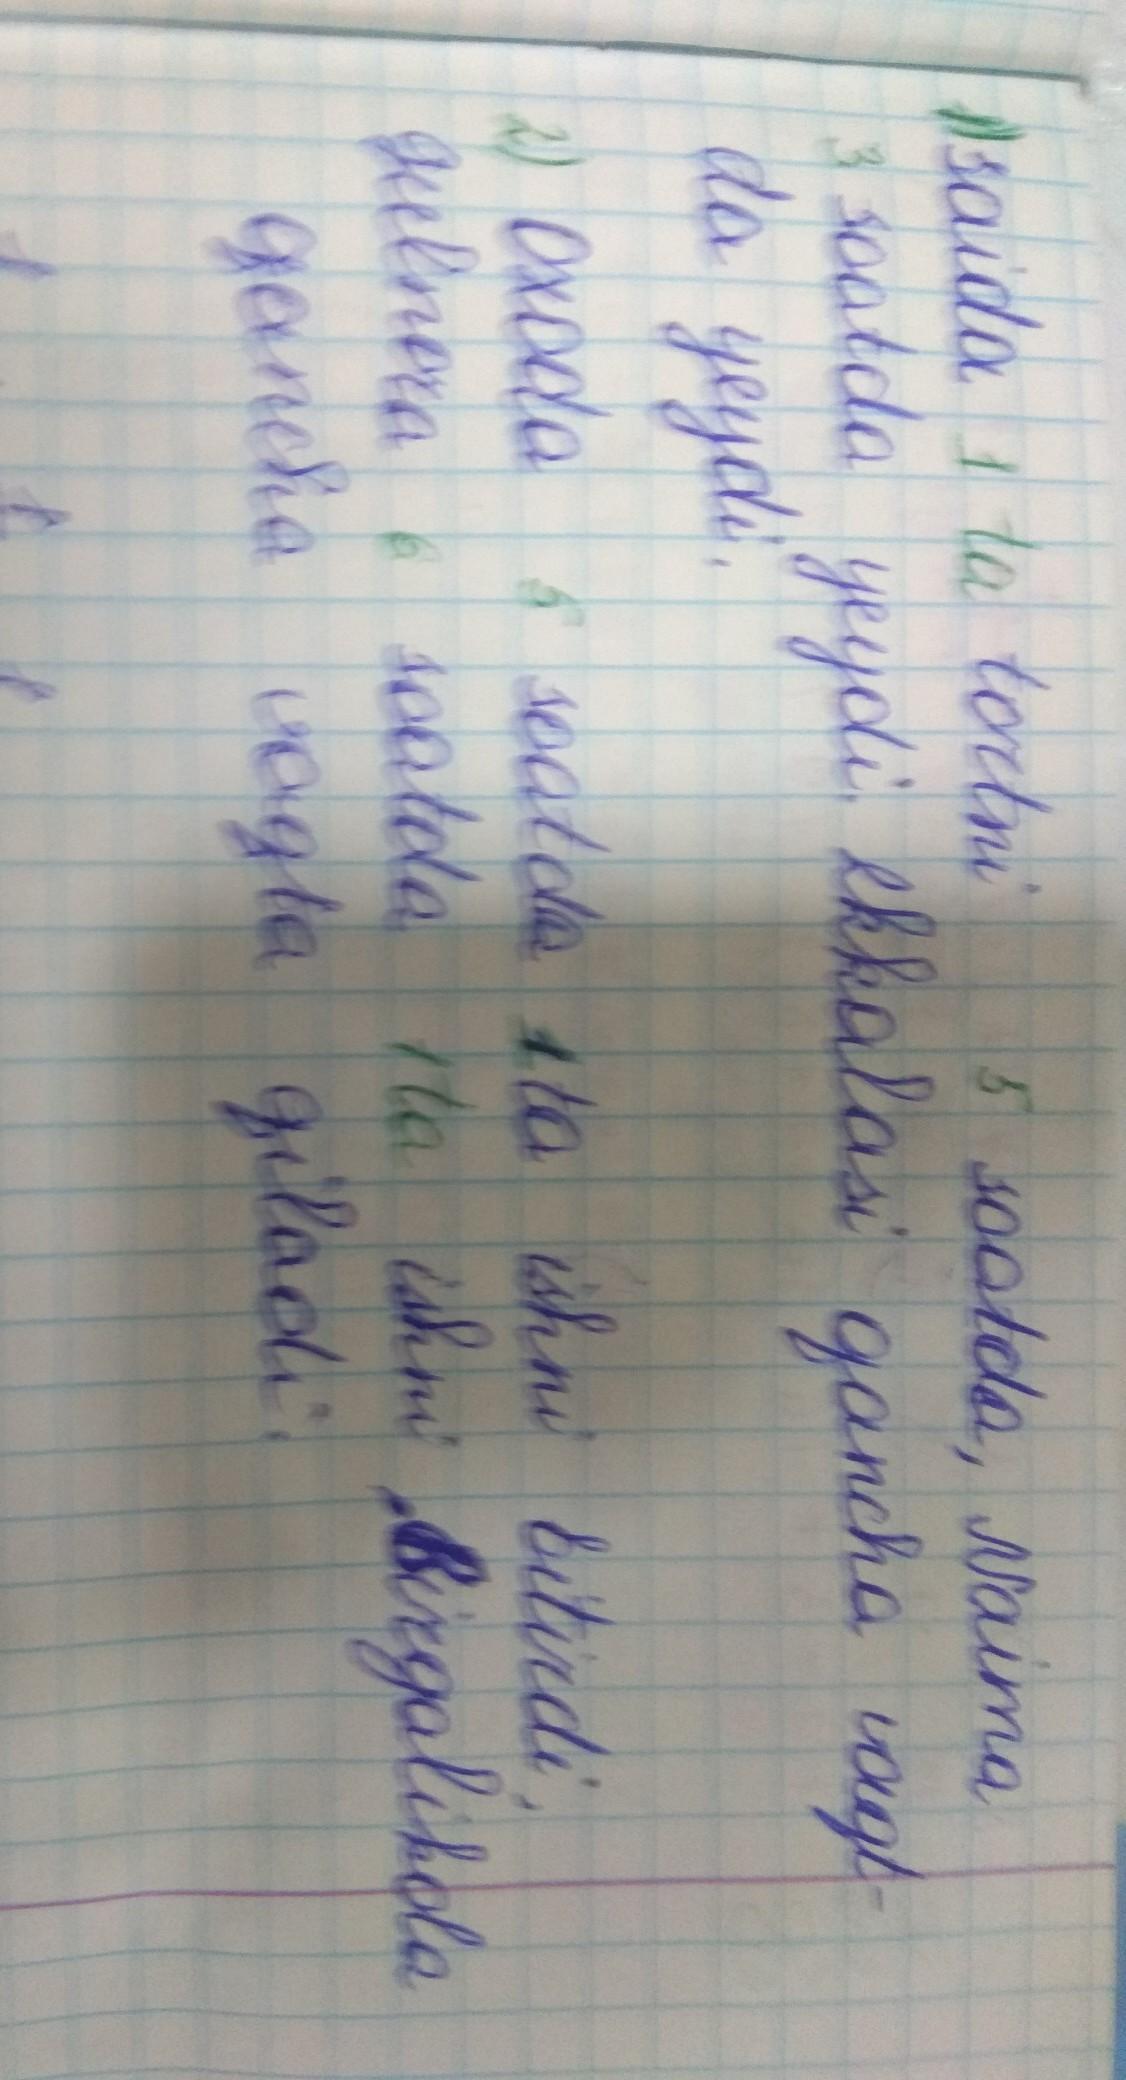 1) saida 1 ta tortni 5 soatda, Naima
3 soatda yeydi. ekkalasi qancha vaqt-
da yeydi.
2) Oxoda 5 soatda 1 ta ishni bitirdi,
gulnora 6 soatda 1 ta ishni, Birgalikda
qancha vaqta qiladi.